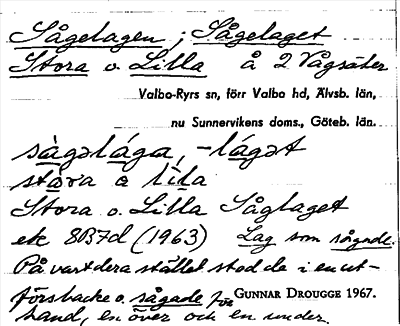 Sågelagen; Sågelaget
Stora o. Lilla å 2 Vågsäter
Valbo-Ryrs sn, förr Valbo hd, Älvsb. län,
nu Sunnervikens doms., Göteb. län.
sàgəlága, -lágət
stora o lila
Stora o. Lilla Såglaget
etc 8B7d (1963) Lag som sågade.
På vartdera stället stod de i en ut-
försbacke o. sågade för
GUNNAR DROUGGE 1967.
hand, en över och en under.